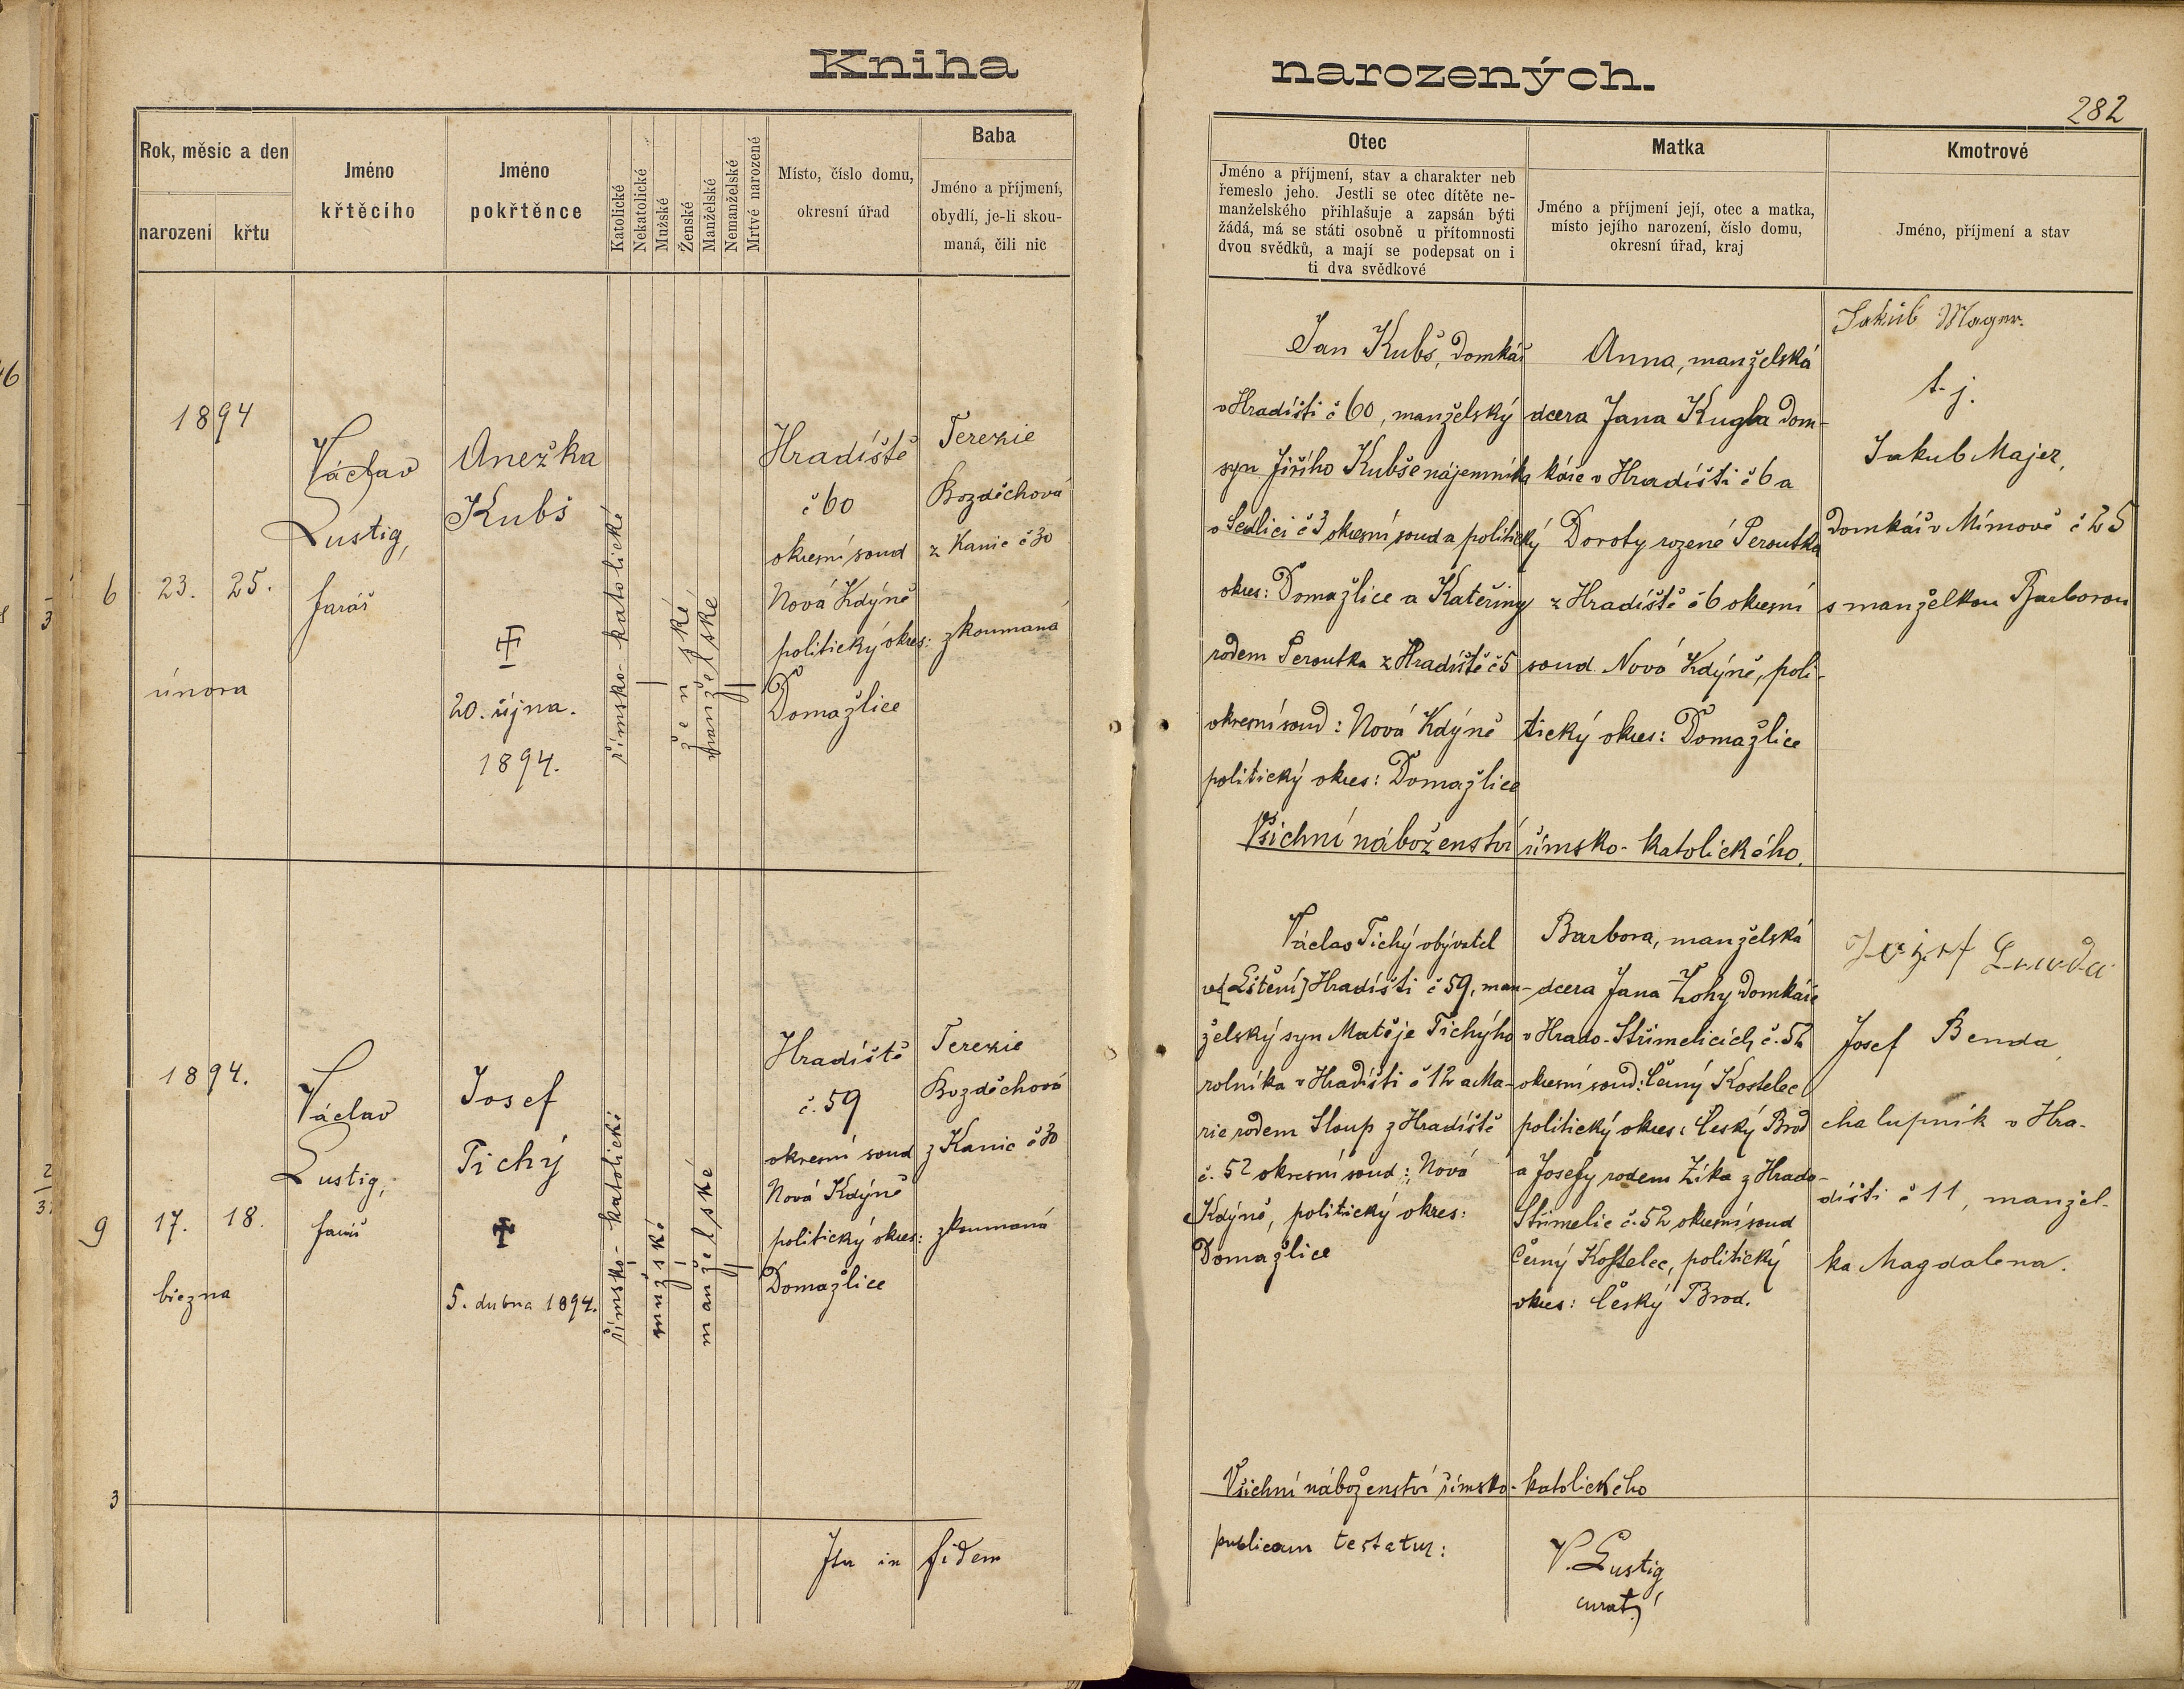 Kniha narozených.
282
Rok, měsíc a den
narození
křtu
Jméno
křtěcího
Jméno
pokřtěnce
Katolické
Nekatolické
Mužské
Ženské
Manželské
Nemanželské
Mrtvě narozené
Místo, číslo domu,
okresní úřad
Baba
Jméno a příjmení,
obydlí, je-li skou-
maná, čili nic
Otec
Jméno a příjmení, stav a charakter neb
řemeslo jeho. Jestli se otec dítěte ne-
manželského přihlašuje a zapsán býti
žádá, má se státi osobně u přítomnosti
dvou svědků, a mají se podepsat on i
ti dva svědkové
Matka
Jméno a příjmení její, otec a matka,
místo jejího narození, číslo domu,
okresní úřad, kraj
Kmotrové
Jméno, příjmení a stav
6
1894
23. 25.
února
Václav
Lustig,
farář
Anežka
Kubš
20. října.
1894.
římsko-katolické
ženské
manželské
Hradiště
č 60
okresní soud
Nová Kdýně
politický okres:
Domažlice
Terezie
Bozděchová
z Kanic č 30
zkoumaná
Jan Kubš, domkář
v Hradišti č 60, manželský
syn Jiřího Kubše nájemníka
v Sedlici č 3 okresní soud a politický
okres: Domažlice a Kateřiny
rodem Peroutka z Hradiště č 5
okresní soud: Nová Kdýně
politický okres: Domažlice
Anna, manželská
dcera Jana Kugla dom-
káře v Hradišti č 6 a
Doroty rozené Peroutka
z Hradiště č 6 okresní
soud Nová Kdýně, poli-
tický okres: Domažlice
Všichni náboženství římsko-katolického.
Jakub Mager.
t. j.
Jakub Majer,
domkář v Mímově č 25
s manželkou Barborou
9
1894.
17. 18.
března
Václav
Lustig,
farář
Josef
Tichý
5. dubna 1894.
římsko-katolické
mužské
manželské
Hradiště
č. 59
okresní soud
Nová Kdýně
politický okres:
Domažlice
Terezie
Bozděchová
z Kanic č 30
zkoumaná
Václav Tichý obývatel
ve [Lštění] Hradišti č 59, man-
želský syn Matěje Tichýho
rolníka v Hradišti č 12 a Ma-
rie rodem Sloup z Hradiště
č. 52 okresní soud: Nová
Kdýně, politický okres:
Domažlice
Barbora, manželská
dcera Jana Zohy domkáře
v Hrado-Střimelicích č. 52
okresní soud: Černý Kostelec
politický okres: Český Brod
a Josefy rodem Zíka z Hrado-
Střimelic č. 52, okresní soud
Černý Kostelec, politický
okres: Český Brod.
Josef Benda
chalupník v Hra-
dišti č 11, manžel-
ka Magdalena.
3
Všichni náboženství římsko-katolického
Ita in fidem
publicam testatur:
V. Lustig
curat.